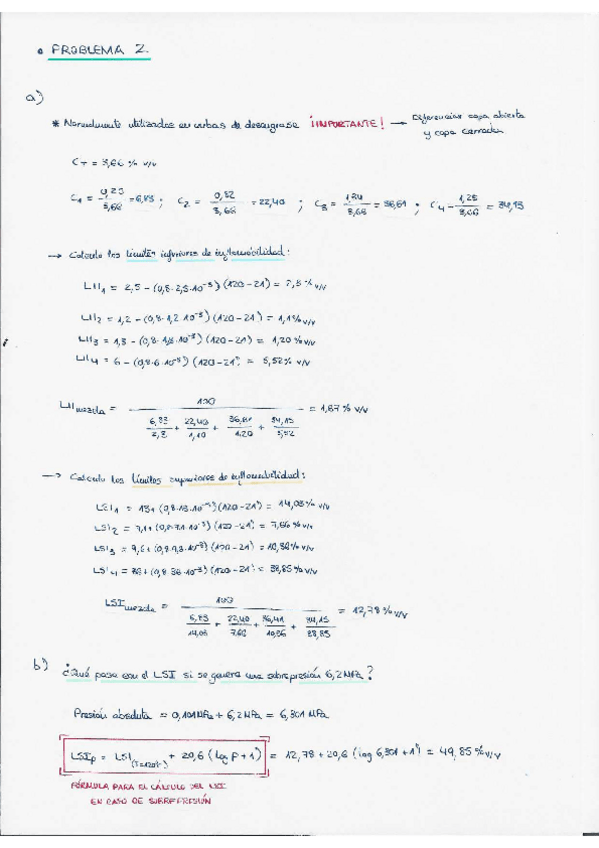 • PROBLEMA 2.
a)
* Normalmente utilizados en cubas de desengrase ¡IMPORTANTE! → Diferenciar copa abierta
y copa cerrada
CT = 3,66 % v/v
C1 = 0,25 / 3,66 = 6,83 ; C2 = 0,82 / 3,66 = 22,40 ; C3 = 1,34 / 3,66 = 36,61 ; C4 = 1,25 / 3,66 = 34,15
→ Calculo los límites inferiores de inflamabilidad:
LII1 = 2,5 - (0,8·2,5·10⁻³)(120-21) = 2,3 % v/v
LII2 = 1,2 - (0,8·1,2·10⁻³)(120-21) = 1,1 % v/v
LII3 = 1,3 - (0,8·1,3·10⁻³)(120-21) = 1,20 % v/v
LII4 = 6 - (0,8·6·10⁻³)(120-21) = 5,52 % v/v
LII mezcla = 100 / (6,83/2,3 + 22,40/1,10 + 36,61/1,20 + 34,15/5,52) = 1,67 % v/v
→ Calculo los límites superiores de inflamabilidad:
LSI1 = 13 + (0,8·13·10⁻³)(120-21) = 14,03 % v/v
LSI2 = 7,1 + (0,8·7,1·10⁻³)(120-21) = 7,66 % v/v
LSI3 = 9,6 + (0,8·9,3·10⁻³)(120-21) = 10,36 % v/v
LSI4 = 36 + (0,8·36·10⁻³)(120-21) = 38,85 % v/v
LSI mezcla = 100 / (6,83/14,03 + 22,40/7,66 + 36,41/10,36 + 34,15/38,85) = 12,78 % v/v
b) ¿Qué pasa con el LSI si se genera una sobrepresión 6,2 MPa?
Presión absoluta = 0,101 MPa + 6,2 MPa = 6,301 MPa
LSIp = LSI (T=120ºC) + 20,6 (log P + 1) = 12,78 + 20,6 (log 6,301 + 1) = 49,85 % v/v
FÓRMULA PARA EL CÁLCULO DEL LSI
EN CASO DE SOBREPRESIÓN